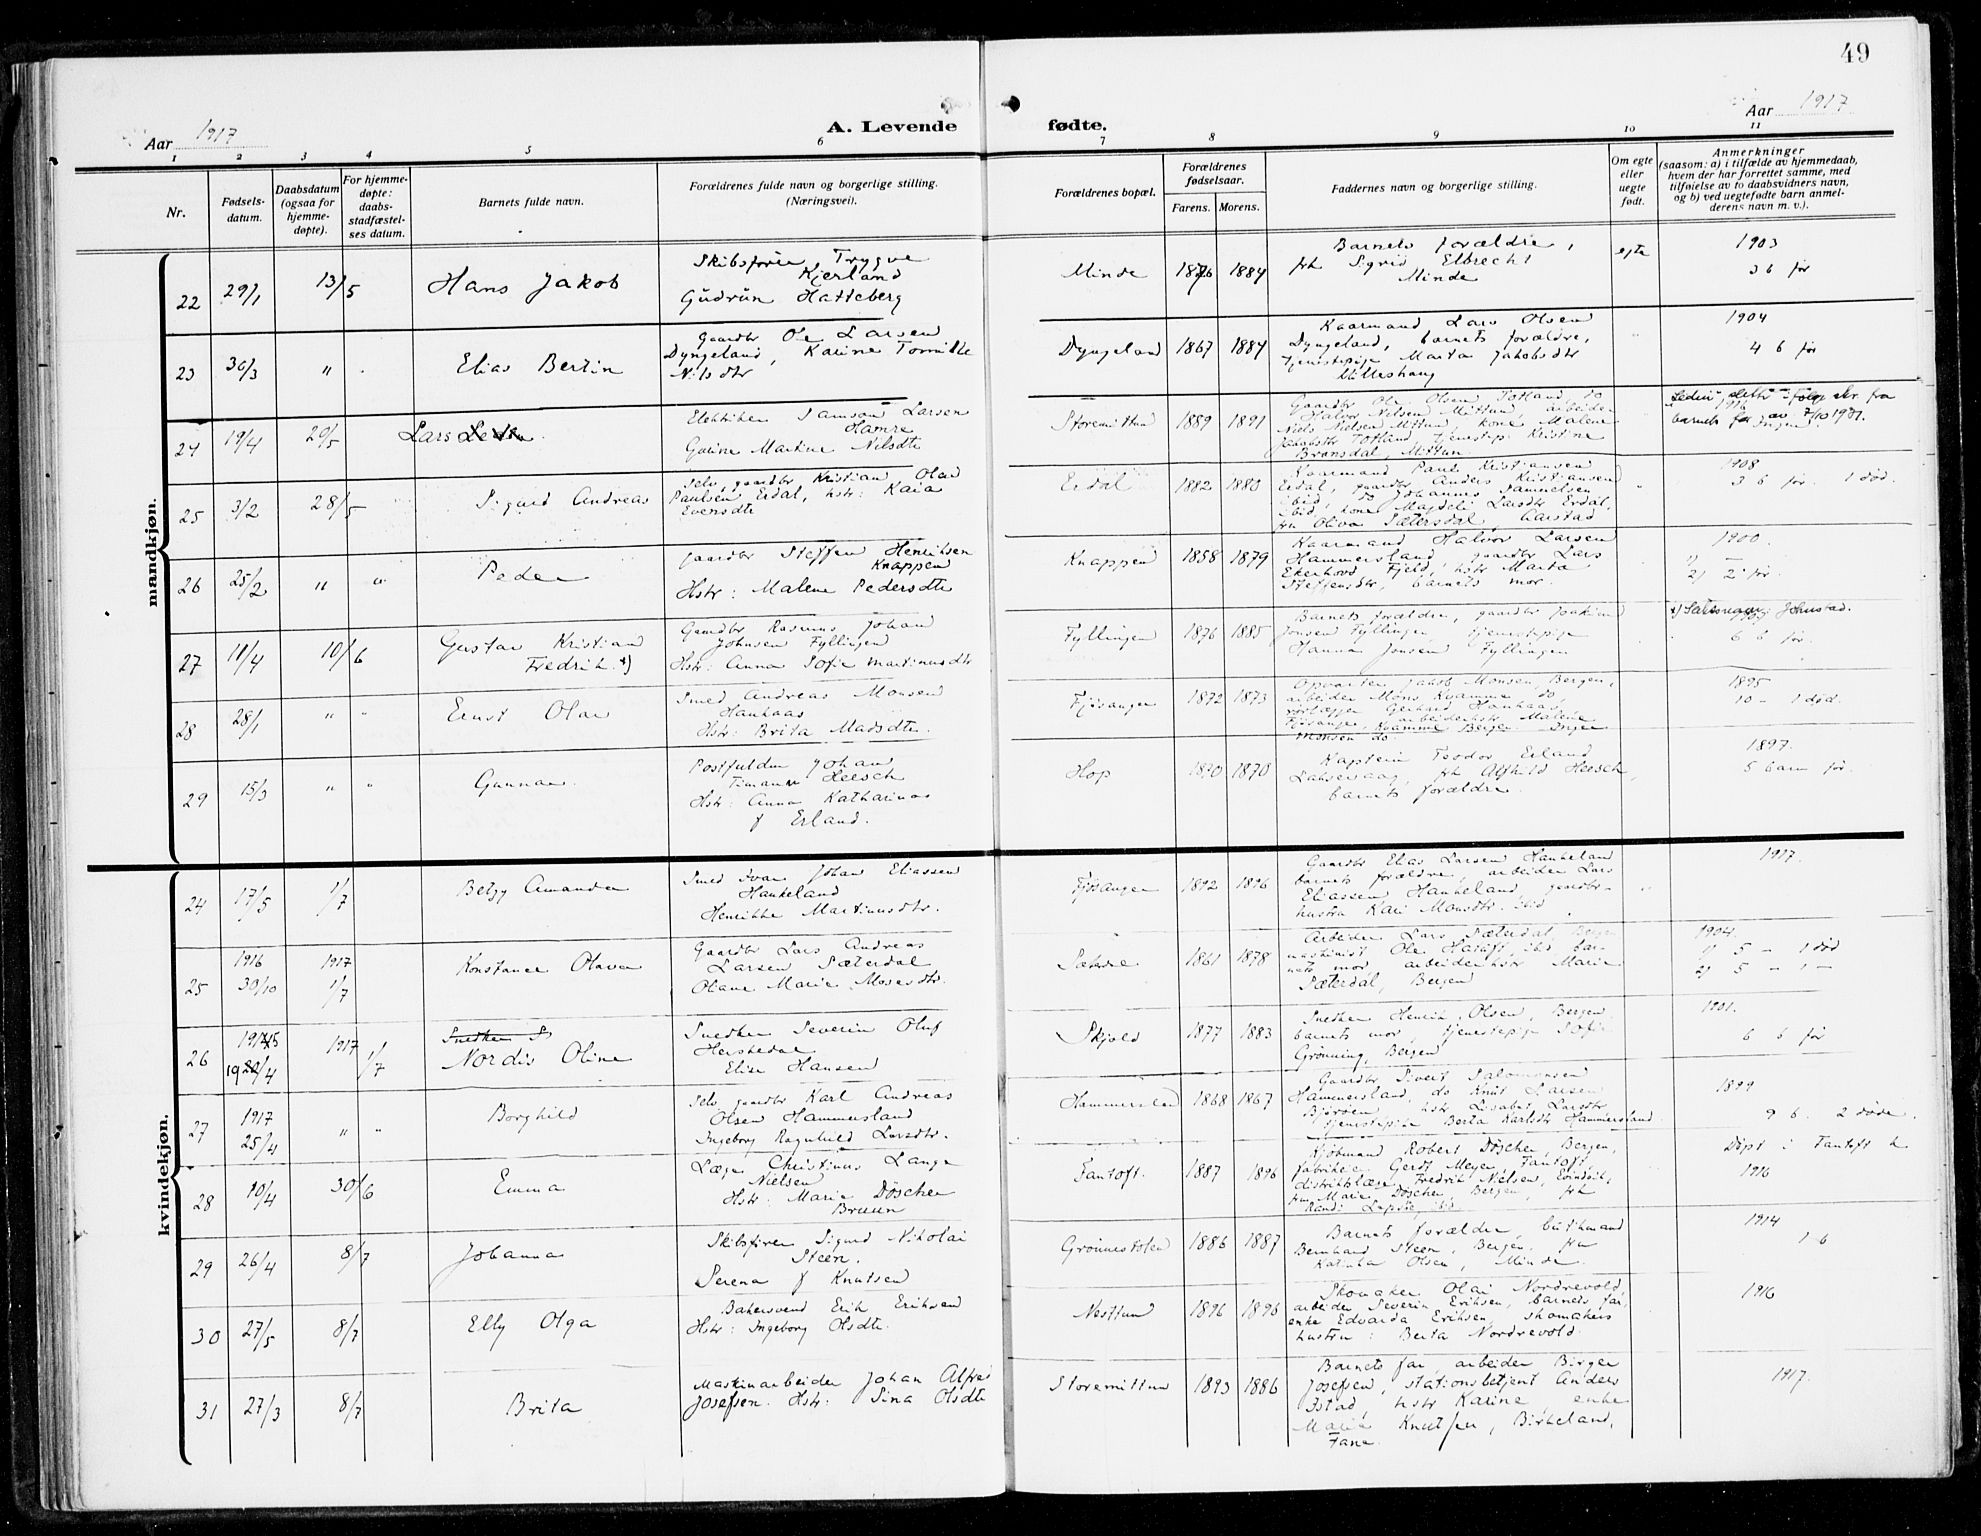 49
Aar 1917
A. Levende
fødte.
Aar 1917
1 2 3 4 5 6 7 8 9 10 11
Nr.
Fødsels-
datum.
Daabsdatum
(ogsaa for
hjemme-
døpte).
For hjemme-
døpte:
daabs-
stadfæstel-
ses datum.
Barnets fulde navn.
Forældrenes fulde navn og borgerlige stilling.
(Næringsvei).
Forældrenes bopæl.
Forældrenes
fødselsaar.
Farens. Morens.
Faddernes navn og borgerlige stilling.
Om egte
eller
uegte
født.
Anmerkninger
(saasom: a) i tilfælde av hjemmedaab,
hvem der har forrettet samme, med
tilføielse av to daabsvidners navn,
og b) ved uegtefødte barn anmel-
derens navn m. v.).
mandkjøn.
22 29/1 13/5 Hans Jakob
Skibsfører Trygve
Kjerland
Gudrun Hatteberg
Minde 1876 1884
Barnets forældre,
frk Sigrid Elbrecht
Minde
egte
1903
3 b før
23 30/3 " Elias Bertin
Gaardbr Ole Larsen
Dyngeland, Karine
Nilsdtr
Dyngeland 1867 1884
Kaarmand Lars Olsen
Dyngeland, barnets forældre,
tjenestepige Marta Jakobsdtr
Milleshaug
1904
4 b før
24 19/4 20/5 Lars
Elektriker Samson Larsen
Hamre
Gurine Martine Nilsdtr
Storemittun 1889 1891
Gaardbr Ole Olsen Totland, do
Halvor Nielsen Mittun, arbeider
Niels Nielsen Mittun, kone Malene
Jakobsdtr Totland, tjenestep. Kristine
Brønsdal, Mittun.
1916
25 3/2 28/5 Sigurd Andreas
Selv. gaardbr Kristian Olai
Paulsen Erdal, hstr: Kaia
Evensdtr
Erdal 1882 1880
Kaarmand Paul Kristiansen
Erdal, gaardbr Anders Kristiansen
ibid, do Johannes Samuelsen
ibid, kone Magdeli Larsdtr Erdal,
frk Oliva Sætersdal, Aarstad
1908
3 b før. 1 død.
26 25/2 " " Peder
Gaardbr Steffen Henriksen
Knappen
Hstr: Malene Pedersdtr
Knappen 1858 1879
Kaarmand Halvor Larsen
Hammersland, gaardbr Lars
Ekerhovd Fjeld, hstr Marta
Steffensdtr, barnets mor.
1900.
1) —
2) 2 før.
27 11/4 10/6 Gustav Kristian
Fredrik x)
Gaardbr Rasmus Johan
Johnsen Fyllingen
Hstr: Anna Sofie Martinusdtr
Fyllingen 1876 1885
Barnets forældre, gaardbr Joakim
Jonsen Fyllingen, tjenestepige
Hanna Jonsen Fyllingen
6 b før.
28 28/1 " " Ernst Olav
Smed Andreas Monsen
Haukaas
Hstr: Brita Madsdtr.
Fjøsanger 1872 1873
Opvarter Jakob Monsen, Bergen,
arbeider Mons Kvamme do,
Gerhard Haukaas,
Fjøsanger, arbeiderhstr Malene
Kvamme Bergen. Inger
Monsen do.
1895
10 — 1 død.
29 15/3 " " Gunnar.
Postfuldm Johan
Timann Heesch
Hstr: Anna Katharinas
f Erland.
Hop 1870 1870
Kaptein Teodor Erland
Laksevaag, frk Alfhild Heesch,
barnets forældre.
1897.
5 barn før.
kvindekjøn.
24 17/5 1/7 Betzy Amanda
Smed Ivar Johan Eliassen
Haukeland
Henrikke Martinusdtr.
Fjøsanger 1892 1896
Gaardbr Elias Larsen Haukeland
barnets forældre, arbeider Lars
Eliassen Haukeland, gaardbr-
hustru Kari Monsdtr. ibid.
1917.
25 1916 30/10 1917 1/7 Konstance Olava
Gaardbr Lars Andreas
Larsen Sæterdal
Oline Marie Mosesdtr.
1861 1878
Arbeider Lars Sæterdal, Bergen
maskinist Ole ibid bar-
nets mor, arbeiderhstr Marie
Sæterdal, Bergen
1904.
1) 5 — 1 død
2) 5 — 1 —
26 1917 1/7 Nordis Oline
Snedker Severin Oluf
Herstedal
Elise Hansen
Skjold 1877 1883
Snedker Henrik Olsen, Bergen.
barnets mor, tjenestepige Sofie
Grønning, Bergen
1901.
6 b før
27 1917 25/4 " " Borghild
Selv. gaardbr Karl Andreas
Olsen Hammersland
Ingeborg Ragnhild Larsdtr.
Hammersland 1868 1867
Gaardbr Sivert Salomonsen
Hammersland, do Knut Larsen
Bjørsen, hstr Lisabet Larsdtr
tjenestepike Berta Karlsdtr Hammersland.
1899
9 b. 2 døde.
28 10/4 30/6 Emma
Læge Christinus Lange
Nielsen
Hstr: Marie Døscher
Bruun
Fantoft. 1887 1896
Kjøbmand Robert Døscher, Bergen,
fabrikeier Gerdt Meyer, Fantoft,
distriktslæge Fredrik Nielsen,
fru Marie Døscher, Bergen, frk
Randi ibid.
Døpt i Fantoft k
1916
29 26/4 8/7 Johanna
Skibsfører Sigurd Nikolai
Steen.
Serena f Knutsen
Grønnestølen 1886 1887
Barnets forældre, butikmand
Bernhard Steen, Bergen. fru
Katinka Olsen, Minde.
1914
1 b
30 27/5 8/7 Elly Olga
Bakersvend Erik Eriksen
Hstr: Ingeborg Olsdtr.
Nesttun 1896 1896
Skomaker Olai Nordrevold,
arbeider Severin Eriksen, barnets far,
enke Edvarda Eriksen, skomakers
hustru: Berta Nordrevold.
1916
31 27/3 8/7 Brita
Maskinarbeider Johan Alfred
Josefsen. Hstr: Sina Olsdtr
Storemittun 1893 1886
Barnets far, arbeider Birger
Josefsen, stationsbetjent Anders
Istad, hstr Karine, enke
Marie Knutsen, Birkeland,
Fane.
1917.